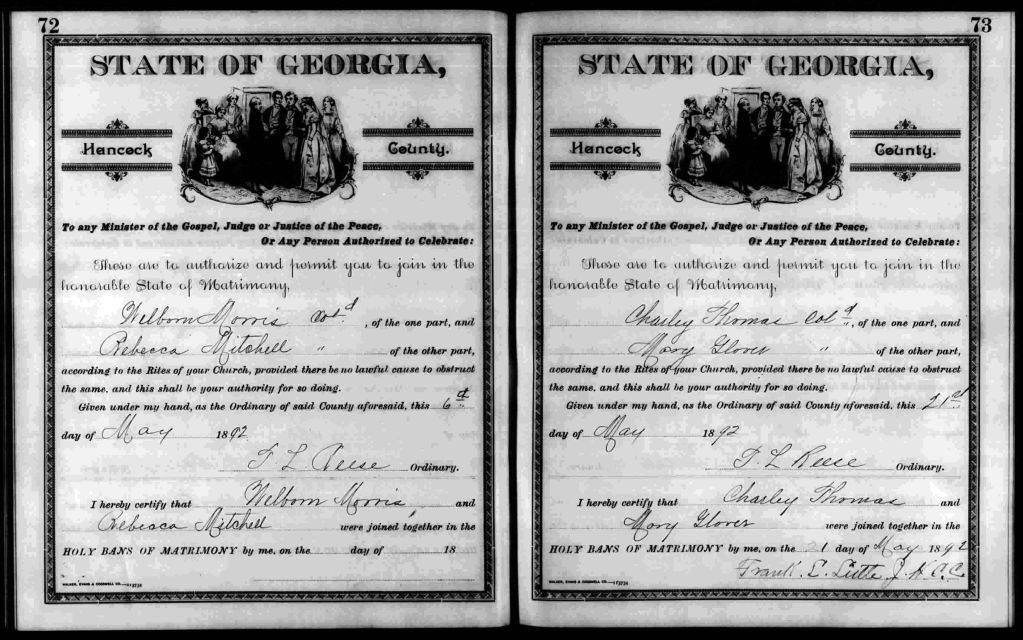 72
STATE OF GEORGIA,
Hancock County.
To any Minister of the Gospel, Judge or Justice of the Peace,
Or Any Person Authorized to Celebrate:
These are to authorize and permit you to join in the
honorable State of Matrimony,
Welborn Morris Cold , of the one part, and
Rebecca Mitchell " of the other part,
according to the Rites of your Church, provided there be no lawful cause to obstruct
the same, and this shall be your authority for so doing.
Given under my hand, as the Ordinary of said County aforesaid, this 6th
day of May 1892
F L Reese Ordinary.
I hereby certify that Welborn Morris and
Rebecca Mitchell were joined together in the
HOLY BANS OF MATRIMONY by me, on the day of 18
73
STATE OF GEORGIA,
Hancock County.
To any Minister of the Gospel, Judge or Justice of the Peace,
Or Any Person Authorized to Celebrate:
These are to authorize and permit you to join in the
honorable State of Matrimony,
Charley Thomas Cold , of the one part, and
Mary Glover " of the other part,
according to the Rites of your Church, provided there be no lawful cause to obstruct
the same, and this shall be your authority for so doing.
Given under my hand, as the Ordinary of said County aforesaid, this 21st
day of May 1892
F. L Reese Ordinary.
I hereby certify that Charley Thomas and
Mary Glover were joined together in the
HOLY BANS OF MATRIMONY by me, on the 21 day of May 1892
Frank. E. Little J.